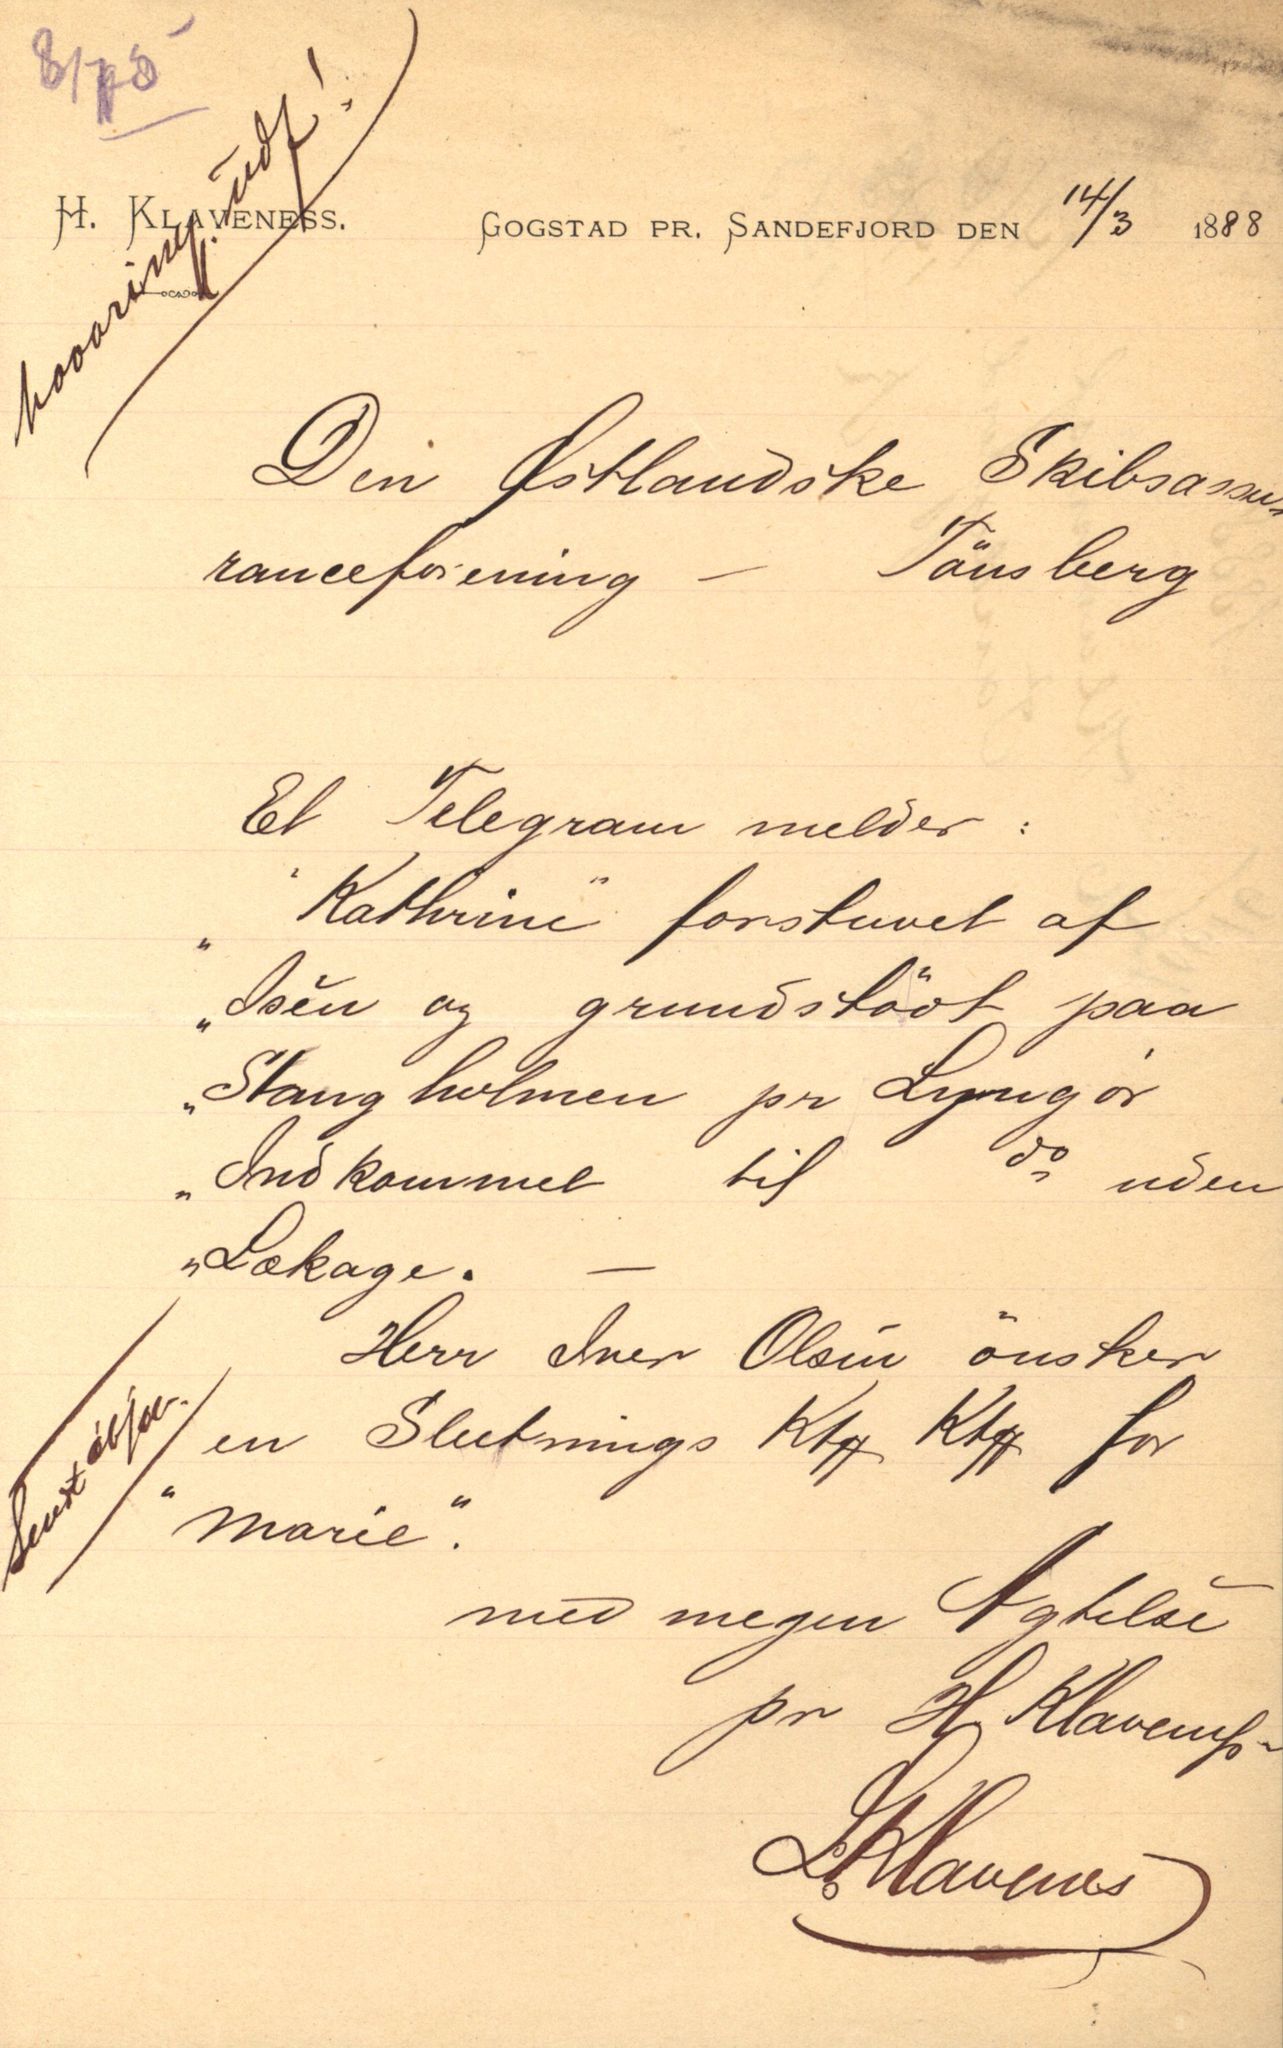 H. KLAVENESS. GOGSTAD PR. SANDEFJORD DEN 14/3 1888
Den Østlandske Skibsassu-
ranceforening — Tönsberg
Et Telegram melder:
"Kathrine" forskuvet af
"Isen og grundstödt paa
"Stangholmen pr Lyngör
"Indkommet til do uden
"Lækage. —
Herr Iver Olsen önsker
en Slutnings
for
"Marie".
med megen Agtelse
pr H. Klaveness
L. Klavenes
Sendt